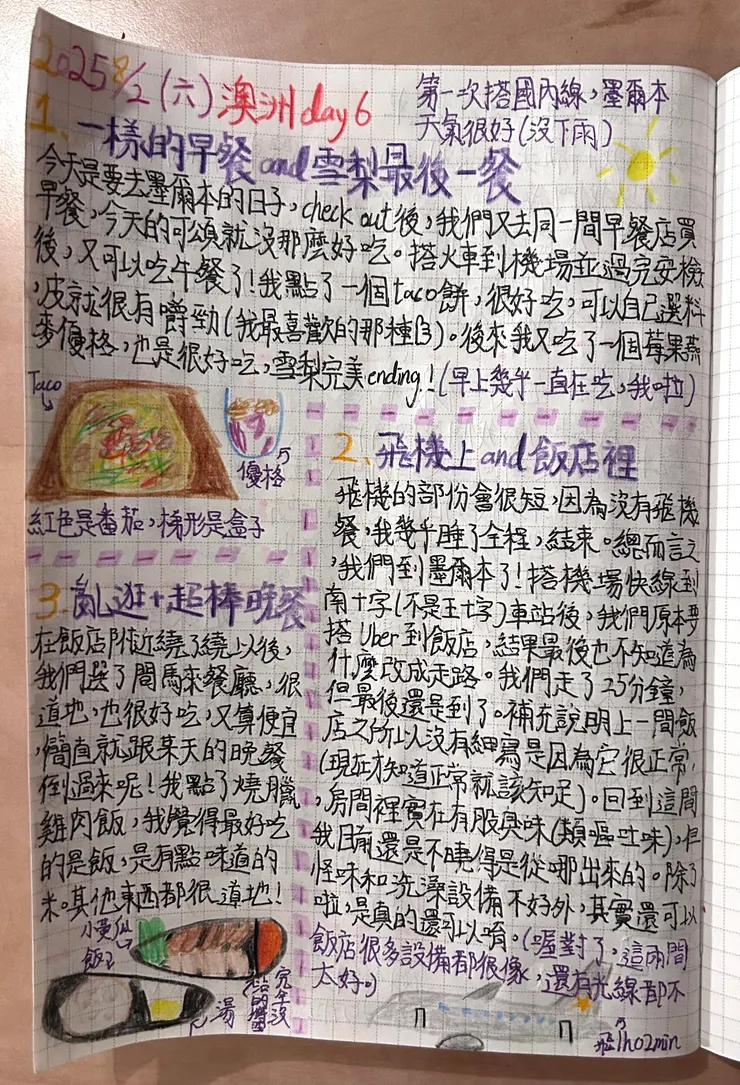 2025 8/2 (六) 澳洲 day 6
第一次搭國內線,墨爾本
天氣很好(沒下雨)
1. 一樣的早餐 and 雪梨最後一餐
今天是要去墨爾本的日子,check out後,我們又去同一間早餐店買
早餐,今天的可頌就沒那麼好吃。搭火車到機場並過完安檢
後,又可以吃午餐了!我點了一個taco餅,很好吃,可以自己選料
,皮就很有嚼勁(我最喜歡的那種)。後來我又吃了一個莓果燕
麥優格,也是很好吃,雪梨完美ending!(早上幾乎一直在吃,我啦)
Taco
優格
紅色是番茄,梯形是盒子
2. 飛機上 and 飯店裡
飛機的部份會很短,因為沒有飛機
餐,我幾乎睡了全程,結束。總而言之
,我們到墨爾本了!搭機場快線到
南十字(不是王十字)車站後,我們原本要
搭Uber到飯店,結果最後也不知道為
什麼改成走路。我們走了25分鐘,
但最後還是到了。補充說明上一間飯
店之所以沒有細寫是因為它很正常,
(現在才知道正常就該知足)。回到這間
,房間裡實在有股臭味(類嘔吐味),但
我目前還是不曉得是從哪出來的。除了
怪味和洗澡設備不好外,其實還可以
啦,是真的還可以唷。(喔對了,這兩間
飯店很多設備都很像,還有光線都不
太好。)
飛1h02min
3. 亂逛+超棒晚餐
在飯店附近繞了繞以後,
我們選了間馬來餐廳,很
道地,也很好吃,又算便宜
,簡直就跟某天的晚餐
倒過來呢!我點了燒臘
雞肉飯,我覺得最好吃
的是飯,是有點味道的
米。其他東西都很道地!
小黃瓜
飯
湯
完全沒
沾的醬